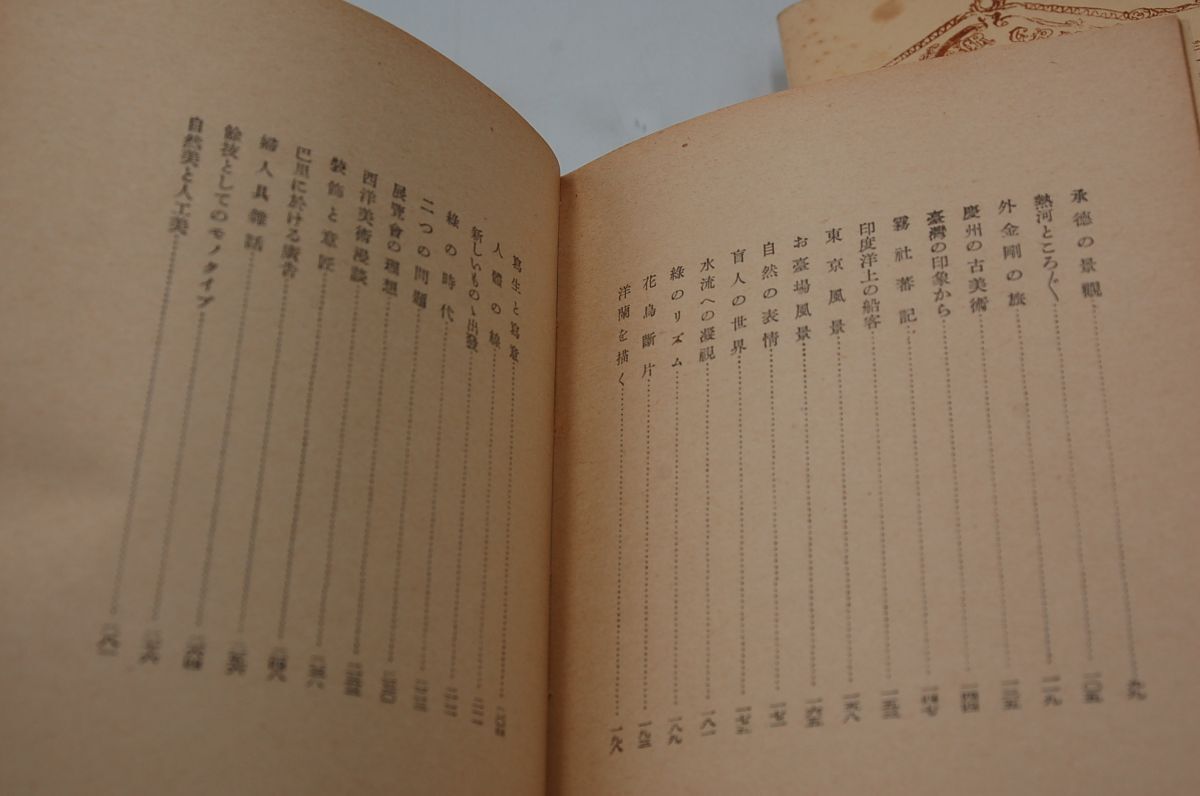 承德の景觀……九九
熱河ところ〴〵……一〇五
外金剛の旅……一一九
慶州の古美術……一三五
臺灣の印象から……一四四
霧社蕃記……一四七
印度洋上の船客……一五三
東京風景……一五八
お臺場風景……一六五
自然の表情……一七二
盲人の世界……一七五
水流への凝視……一八一
綠のリズム……一八九
花鳥斷片……一九三
洋蘭を描く……一九八
寫生と寫意……二〇四
人體の線……二一一
新しいものゝ出發
綠の時代
二つの問題
展覽會の理想
西洋美術漫談
裝飾と意匠
巴里に於ける廣告……二四八
婦人具雜話……二五六
餘技としてのモノタイプ
自然美と人工美……二八一